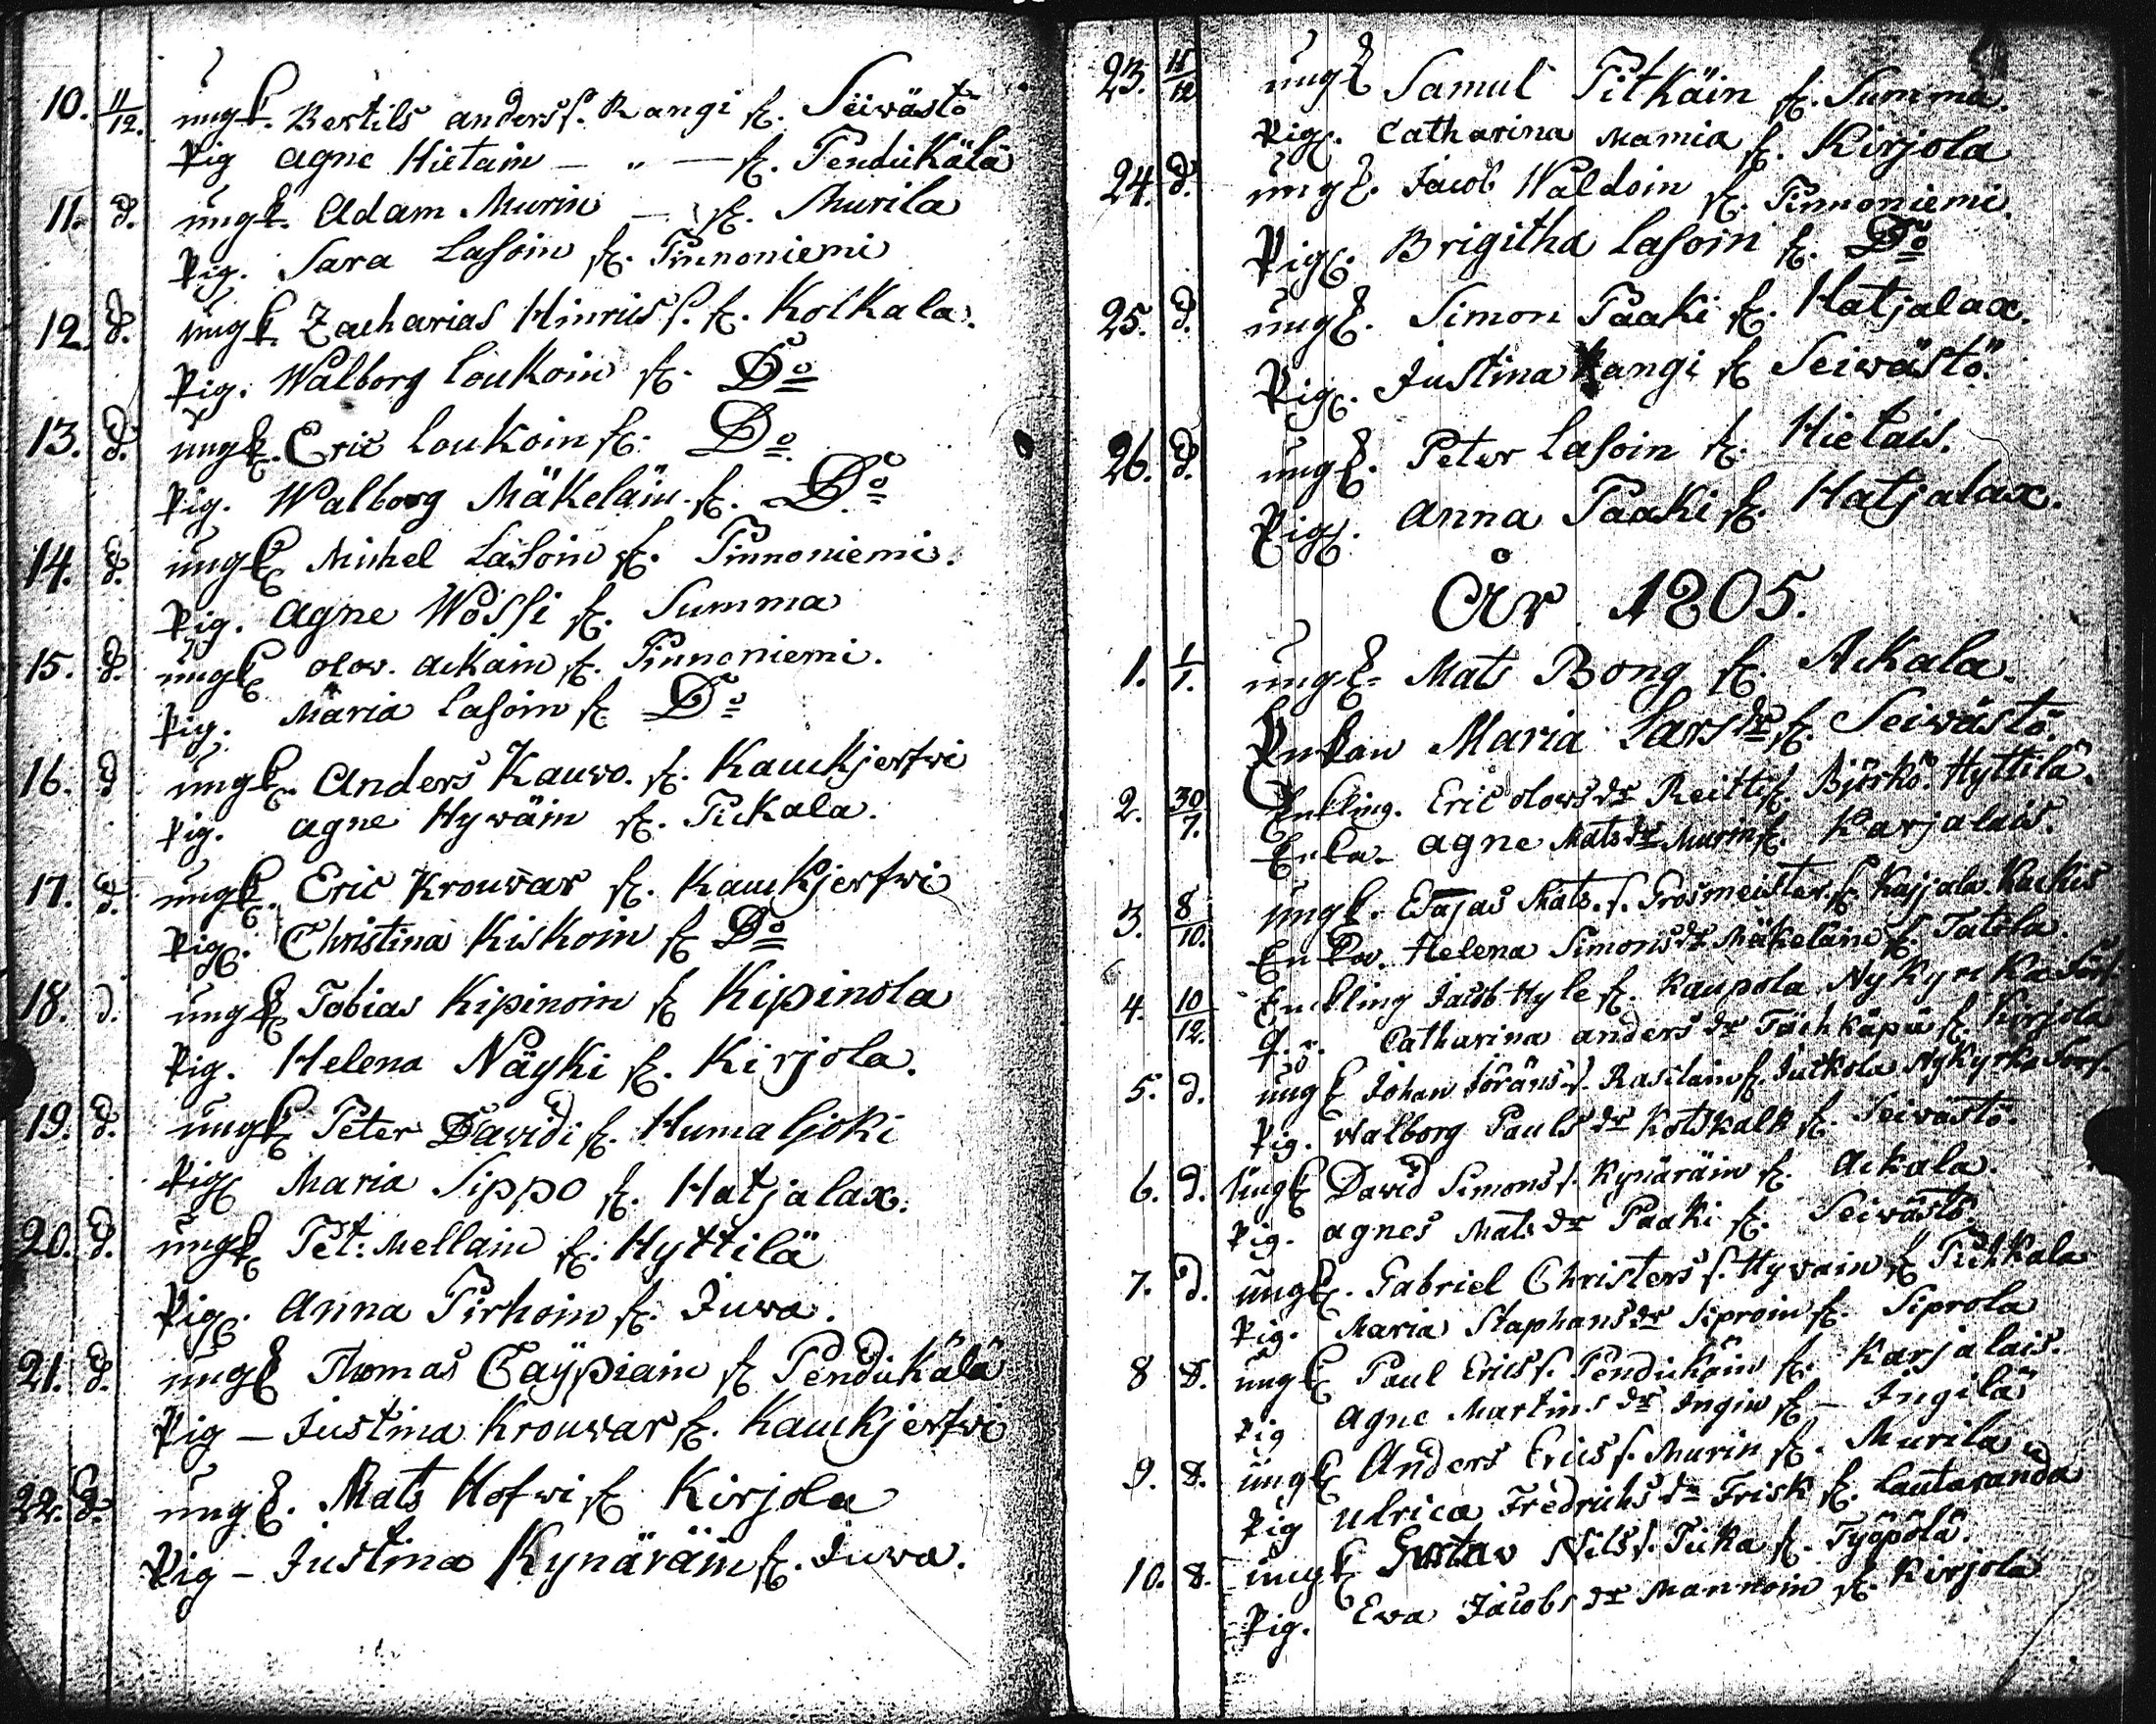 10. 11/12. ungk. Bertils anderss. Rangi fr. Seiwästö
Pig agne Hietain — „ — fr. Pendikälä
11. d. ungk. Adam Murin — fr. Murila
Pig. Sara Lasoin fr. Pinnoniemi
12. d. ungk. Zacharias Hinricss. fr. Kolkala.
Pig. Walborg Loukoin fr. Do
13. d. ungk. Eric Loukoin fr. Do
Pig. Walborg Mäkeläin fr. Do
14. d. ungk Michel Lasoin fr. Pinnoniemi.
Pig. Agne Wossi fr. Summa
15. d. ungk olov. Ackain fr. Pinnoniemi.
Pig. Maria Lasoin fr Do
16. d ungk. Anders Kauwo. fr. Kauckjerfwi
Pig. agne Hywäin fr. Pickala.
17. d. ungk. Eric Krouwar fr. Kauckjerfwi
Pig. Christina Kiskoin fr Do
18. d. ungk Tobias Kipinoin fr Kipinola
Pig. Helena Näyki fr. Kirjola.
19. d. ungk Peter Davidi fr. Humaljoki
Pig Maria Sippo fr. Hatjalax.
20. d. ungk Pet: Mellain fr. Hyttilä
Pig. Anna Pirhoin fr. Juwa.
21. d. ungk Thomas Caÿpiain fr Pendikälä
Pig — Justina Krouwar fr. Kauckjerfwi
22. d. ungk. Mats Hofwi fr Kirjola
Pig — Justina Kynäräin fr. Juwa.
23. 11/12 ungk Samul Pitkäin fr. Summa.
Pig. Catharina Mamia fr. Kirjola
24. d. ungk. Jacob Waldoin fr. Pinnoniemi.
Pig. Brigitha Lasoin fr. Do
25. d. ungk. Simon Paaki fr. Hatjalax.
Pig. Justina Rangi fr Seiwästö.
26. d. ungk. Peter Lasoin fr. Hietais.
Pig. Anna Paaki fr. Hatjalax.
År 1805.
1. 1/1. ungk. Mats Bong fr. Ackala.
Enkan Maria Larsdr fr. Seiwästö.
2. 30/7. Enkling. Eric olowsdr Reitti fr. Björkö. Hyttilä.
Enka. Agne Matsdr Murin fr. Karjalais.
3. 8/10. ungk. Esajas Mats. s. Grosmeister. fr Kajjala. Kackis
Enka. Helena Simonsdr Mäkeläin fr. Tatela.
4. 10/12. Enckling Jacob Hyle fr. Kaupola Nykyrka
Catharina andersdr Täckäpä fr. Kirjola
5. d. ungk Johan Jörans s. Rasilain fr. Juckola Nykyrka
Pig. Walborg Paulsdr Kotskalk fr. Seiwästö.
6. d. ungk David Simonss. Kynäräin fr. Ackala.
Pig. agnes Matsdr Paaki fr. Seiwästö
7. d. ungk. Gabriel Christerss. Hyvain fr Pickala
Pig. Maria Staphansdr Siproin fr. Siprola
8 d. ungk Paul Ericss. Pendikäin fr. Karjalais.
Pig Agne Martinsdr Ingin fr — Ingilä
9. d. ungk Anders Ericss. Murin fr. Murila
Pig Ulrica Fredrichsdr Frisk fr. Lautaranda
10. d. ungk Gustav Nilss. Tuka fr. Työpölä.
Pig. Ewa Jacobsdr Mannoin fr. Kirjola